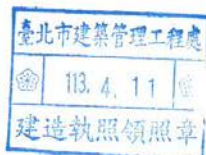 臺北市建築管理工程處
113. 4. 11
建造執照領照章